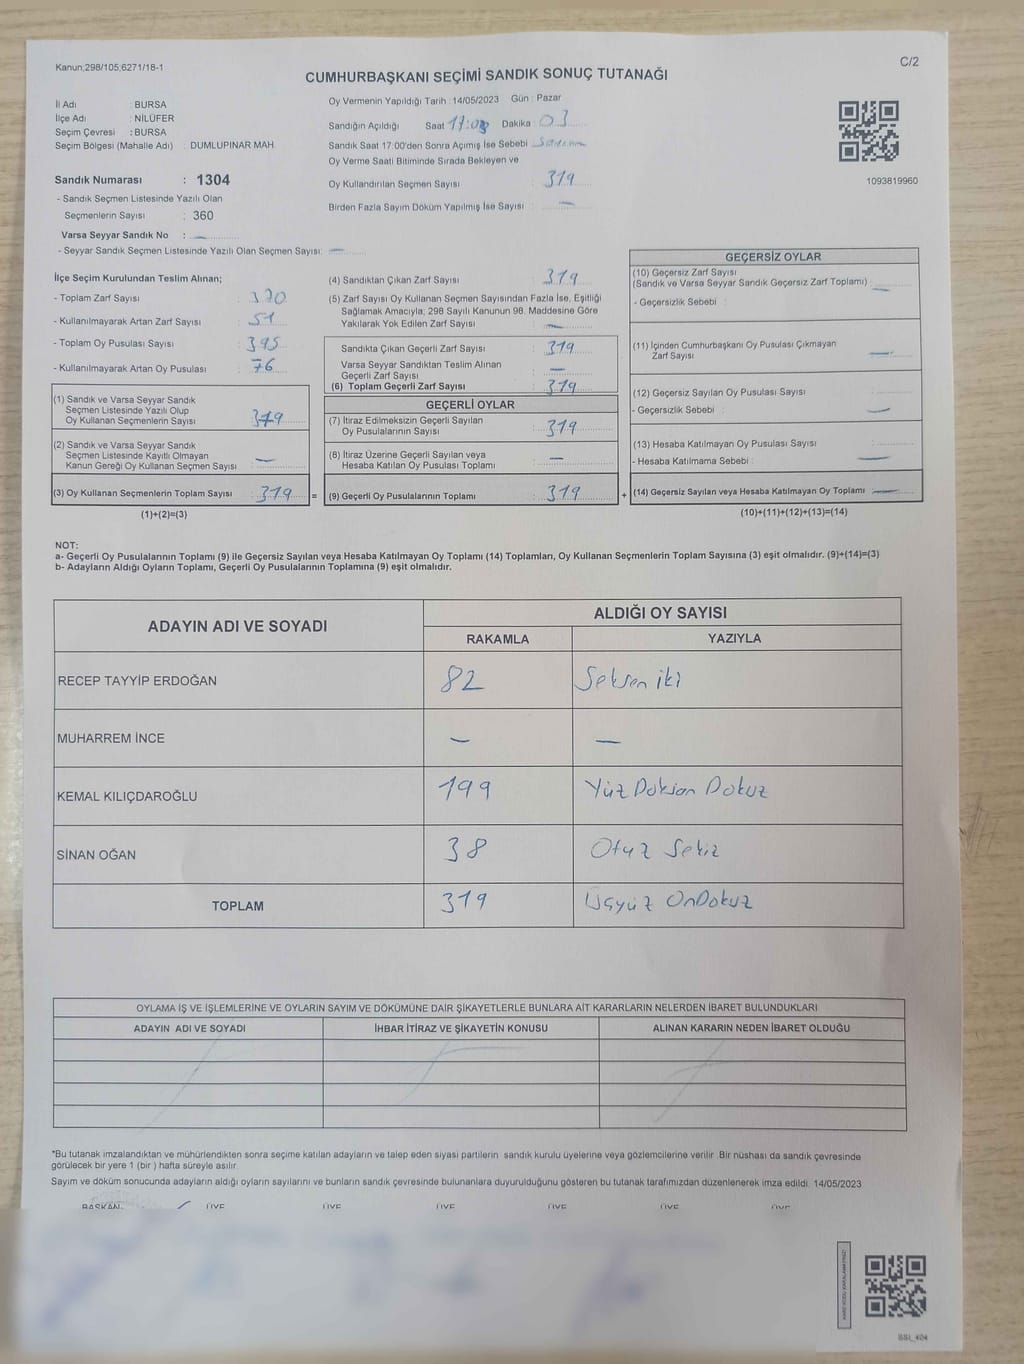 Kanun;298/105,6271/18-1
C/2
CUMHURBAŞKANI SEÇİMİ SANDIK SONUÇ TUTANAĞI
İl Adı : BURSA
İlçe Adı : NİLÜFER
Seçim Çevresi : BURSA
Seçim Bölgesi (Mahalle Adı) : DUMLUPINAR MAH.
Oy Vermenin Yapıldığı Tarih : 14/05/2023 Gün : Pazar
Sandığın Açıldığı Saat 17:03 Dakika : 03
Sandık Saat 17:00'den Sonra Açımış İse Sebebi
Oy Verme Saati Bitiminde Sırada Bekleyen ve
Oy Kullandırılan Seçmen Sayısı 319
Birden Fazla Sayım Döküm Yapılmış İse Sayısı : —
1093819960
Sandık Numarası : 1304
- Sandık Seçmen Listesinde Yazılı Olan
Seçmenlerin Sayısı : 360
Varsa Seyyar Sandık No : —
- Seyyar Sandık Seçmen Listesinde Yazılı Olan Seçmen Sayısı: —
İlçe Seçim Kurulundan Teslim Alınan;
- Toplam Zarf Sayısı : 370
- Kullanılmayarak Artan Zarf Sayısı : 51
- Toplam Oy Pusulası Sayısı : 395
- Kullanılmayarak Artan Oy Pusulası : 76
(1) Sandık ve Varsa Seyyar Sandık
Seçmen Listesinde Yazılı Olup
Oy Kullanan Seçmenlerin Sayısı : 319
(2) Sandık ve Varsa Seyyar Sandık
Seçmen Listesinde Kayıtlı Olmayan
Kanun Gereği Oy Kullanan Seçmen Sayısı : —
(3) Oy Kullanan Seçmenlerin Toplam Sayısı : 319 =
(1)+(2)=(3)
(4) Sandıktan Çıkan Zarf Sayısı : 319
(5) Zarf Sayısı Oy Kullanan Seçmen Sayısından Fazla İse, Eşitliği
Sağlamak Amacıyla; 298 Sayılı Kanunun 98. Maddesine Göre
Yakılarak Yok Edilen Zarf Sayısı : —
Sandıkta Çıkan Geçerli Zarf Sayısı : 319
Varsa Seyyar Sandıktan Teslim Alınan
Geçerli Zarf Sayısı : —
(6) Toplam Geçerli Zarf Sayısı : 319
GEÇERLİ OYLAR
(7) İtiraz Edilmeksizin Geçerli Sayılan
Oy Pusulalarının Sayısı : 319
(8) İtiraz Üzerine Geçerli Sayılan veya
Hesaba Katılan Oy Pusulası Toplamı : —
(9) Geçerli Oy Pusulalarının Toplamı : 319 +
GEÇERSİZ OYLAR
(10) Geçersiz Zarf Sayısı
(Sandık ve Varsa Seyyar Sandık Geçersiz Zarf Toplamı) : —
- Geçersizlik Sebebi :
(11) İçinden Cumhurbaşkanı Oy Pusulası Çıkmayan
Zarf Sayısı : —
(12) Geçersiz Sayılan Oy Pusulası Sayısı :
- Geçersizlik Sebebi : —
(13) Hesaba Katılmayan Oy Pusulası Sayısı :
- Hesaba Katılmama Sebebi : —
(14) Geçersiz Sayılan veya Hesaba Katılmayan Oy Toplamı : —
(10)+(11)+(12)+(13)=(14)
NOT:
a- Geçerli Oy Pusulalarının Toplamı (9) ile Geçersiz Sayılan veya Hesaba Katılmayan Oy Toplamı (14) Toplamları, Oy Kullanan Seçmenlerin Toplam Sayısına (3) eşit olmalıdır. (9)+(14)=(3)
b- Adayların Aldığı Oyların Toplamı, Geçerli Oy Pusulalarının Toplamına (9) eşit olmalıdır.
ADAYIN ADI VE SOYADI ALDIĞI OY SAYISI
RAKAMLA YAZIYLA
RECEP TAYYİP ERDOĞAN 82 Seksen iki
MUHARREM İNCE — —
KEMAL KILIÇDAROĞLU 199 Yüz Doksan Dokuz
SİNAN OĞAN 38 Otuz Sekiz
TOPLAM 319 Üçyüz OnDokuz
OYLAMA İŞ VE İŞLEMLERİNE VE OYLARIN SAYIM VE DÖKÜMÜNE DAİR ŞİKAYETLERLE BUNLARA AİT KARARLARIN NELERDEN İBARET BULUNDUKLARI
ADAYIN ADI VE SOYADI İHBAR İTİRAZ VE ŞİKAYETİN KONUSU ALINAN KARARIN NEDEN İBARET OLDUĞU
*Bu tutanak imzalandıktan ve mühürlendikten sonra seçime katılan adayların ve talep eden siyasi partilerin sandık kurulu üyelerine veya gözlemcilerine verilir. Bir nüshası da sandık çevresinde
görülecek bir yere 1 (bir) hafta süreyle asılır.
Sayım ve döküm sonucunda adayların aldığı oyların sayılarını ve bunların sandık çevresinde bulunanlara duyurulduğunu gösteren bu tutanak tarafımızdan düzenlenerek imza edildi. 14/05/2023
BAŞKAN ÜYE ÜYE ÜYE ÜYE ÜYE ÜYE
SSI_404